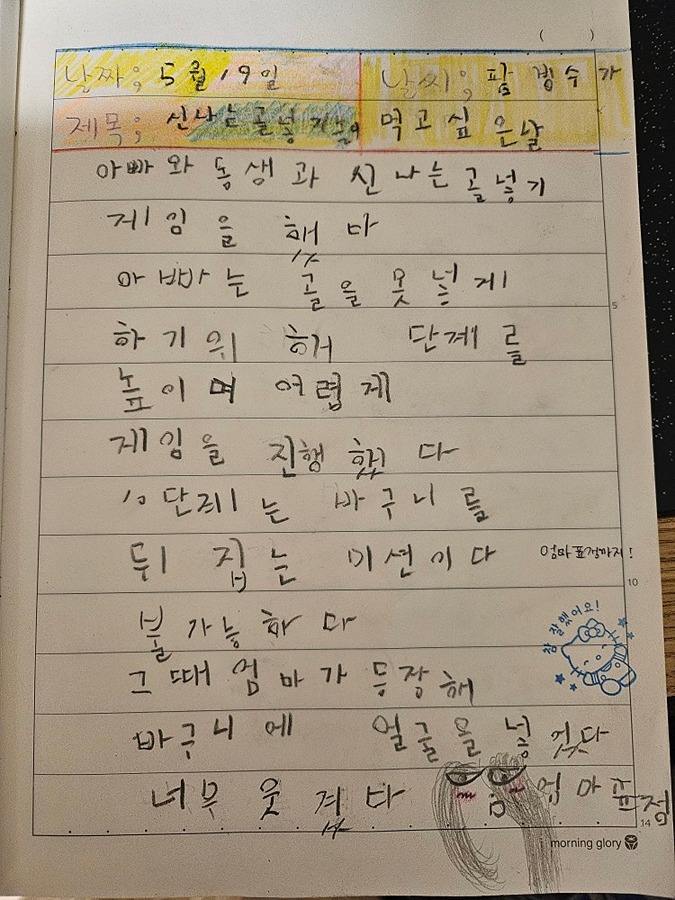 (      )
날짜; 5월 19일 날씨; 팥빙수가
제목; 신나는 골넣기 먹고 싶은날
아빠와 동생과 신나는 골넣기
게임을 했다
아빠는 골을 못 넣게
하기위해 단계를
높이며 어렵게
게임을 진행했다
10단계는 바구니를
뒤집는 미션이다
엄마표정까지!
불가능하다
참 잘했어요!
그때 엄마가 등장해
바구니에 얼굴을 넣었다
너무 웃겼다
엄마표정
5
10
14
morning glory